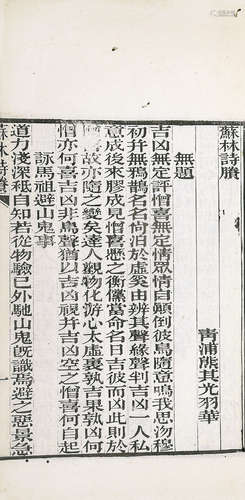 蘇林詩賸
青浦熊其光羽華
無題
吉凶無定評憎喜無定情眾情自顛倒彼鳥隨意鳴我思
初并無鴉鵲名名尚泪於虛奚由辨其聲緣聲判吉凶一人私
意成後來膠成見憎喜懸之衡儻當命名日吉彼而凶此則於
故亦隨之變矣達人觀物化游心太虛裏孰吉果孰凶何
憎亦何喜吉凶非鳥聲猶以吉凶視并吉凶空之憎喜何自起
詠馬祖避山鬼事
道力淺深祇自知若從物驗已外馳山鬼旣識焉避之惡景急
蘇林詩賸